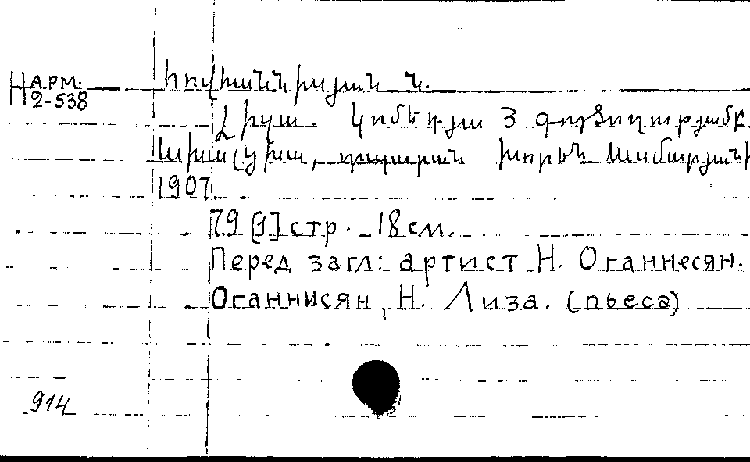 Н АРМ. 2-538
Հովհաննիսյան Ն.
Լիզա. Կոմեդիա 3 գործողությամբ.
Ախալցխա, տպարան
1907
79 [1] стр. 18 см.
Перед загл: артист Н. Оганнесян.
Оганнисян, Н. Лиза. (пьеса)
914